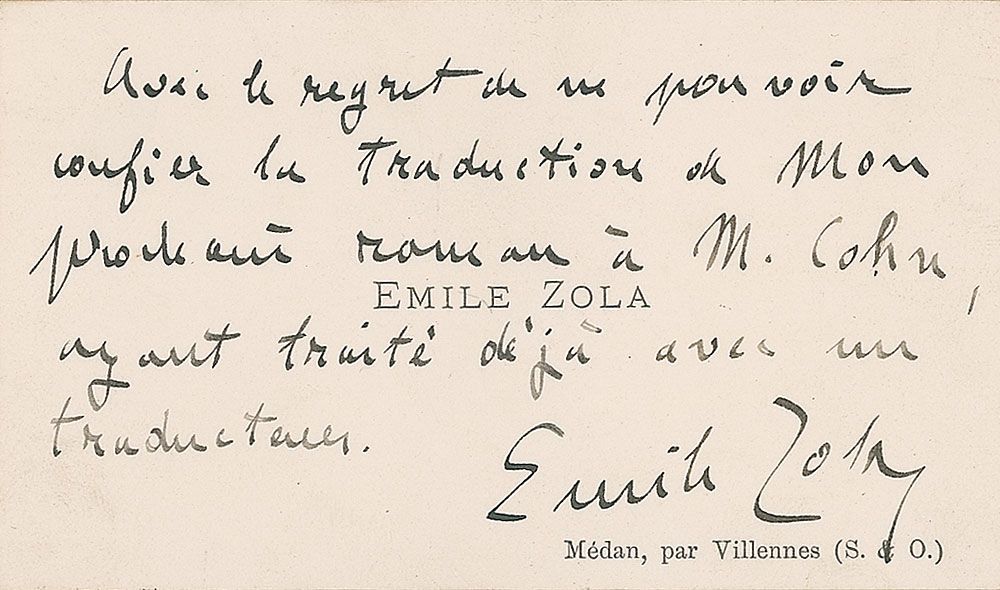 Avec le regret de ne pouvoir
confier la traduction de Mon
prochain roman à M. Cohn,
EMILE ZOLA
ayant traité déjà avec un
traducteur.
Emile Zola
Médan, par Villennes (S. & O.)